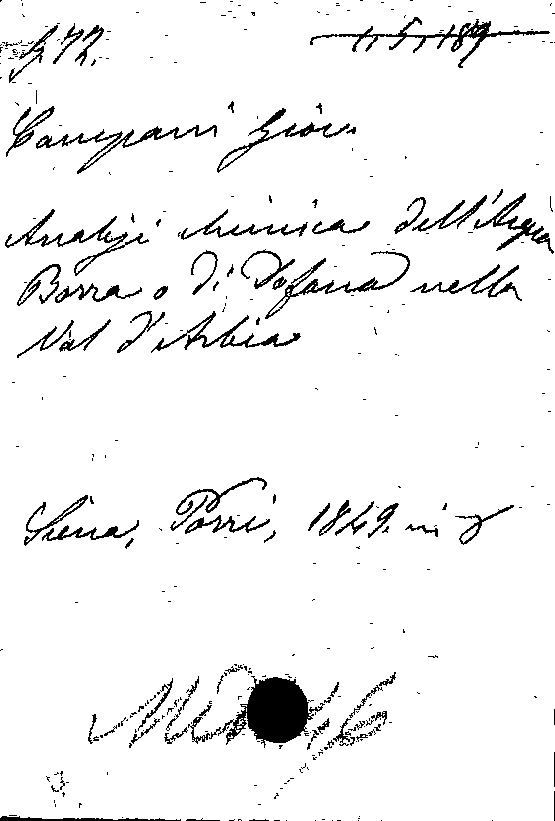 72.
1, 5, 189
Campani Giov.
Analisi chimica dell'Acqua
Borra o di Dofana nella
Val d'Arbia
Siena, Porri, 1849. in 8